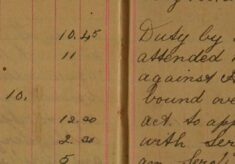 10.45 Duty by
11 attended
against
10. bound over
12.20 act. to app
2.20 with ser
5